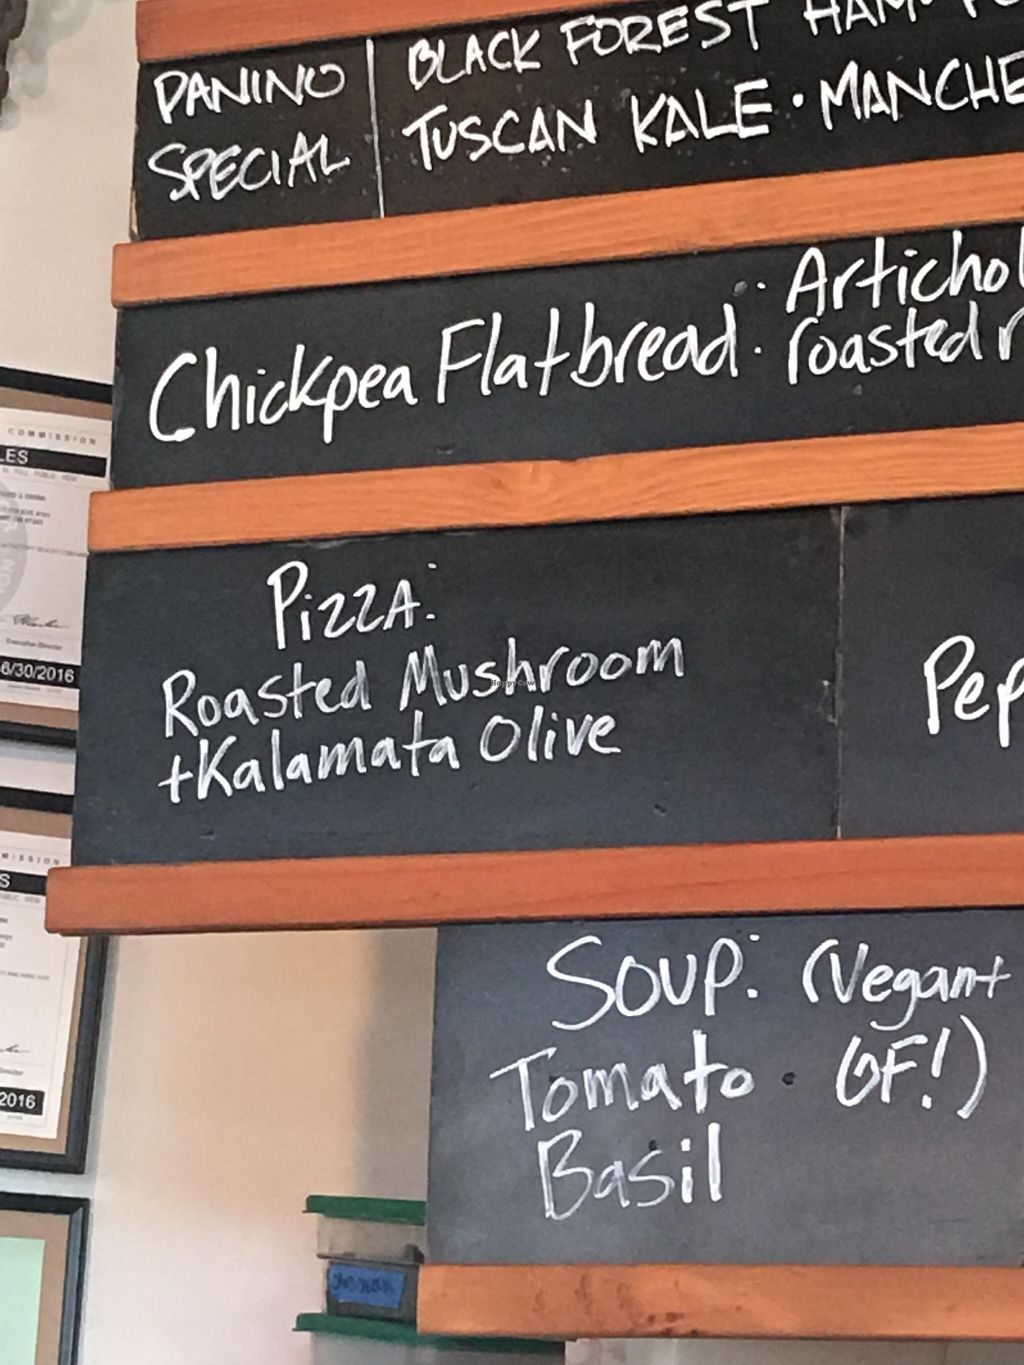 PANINO SPECIAL
BLACK FOREST HAM
TUSCAN KALE · MANCHE
Chickpea Flatbread
Artichol
roasted r
Pizza:
Roasted Mushroom
+Kalamata Olive
Pep
Soup: (Vegan+
Tomato · GF!)
Basil
HappyCow
COMMISSION
LES
6/30/2016
Executive Director
MISSION
S
Director
2016